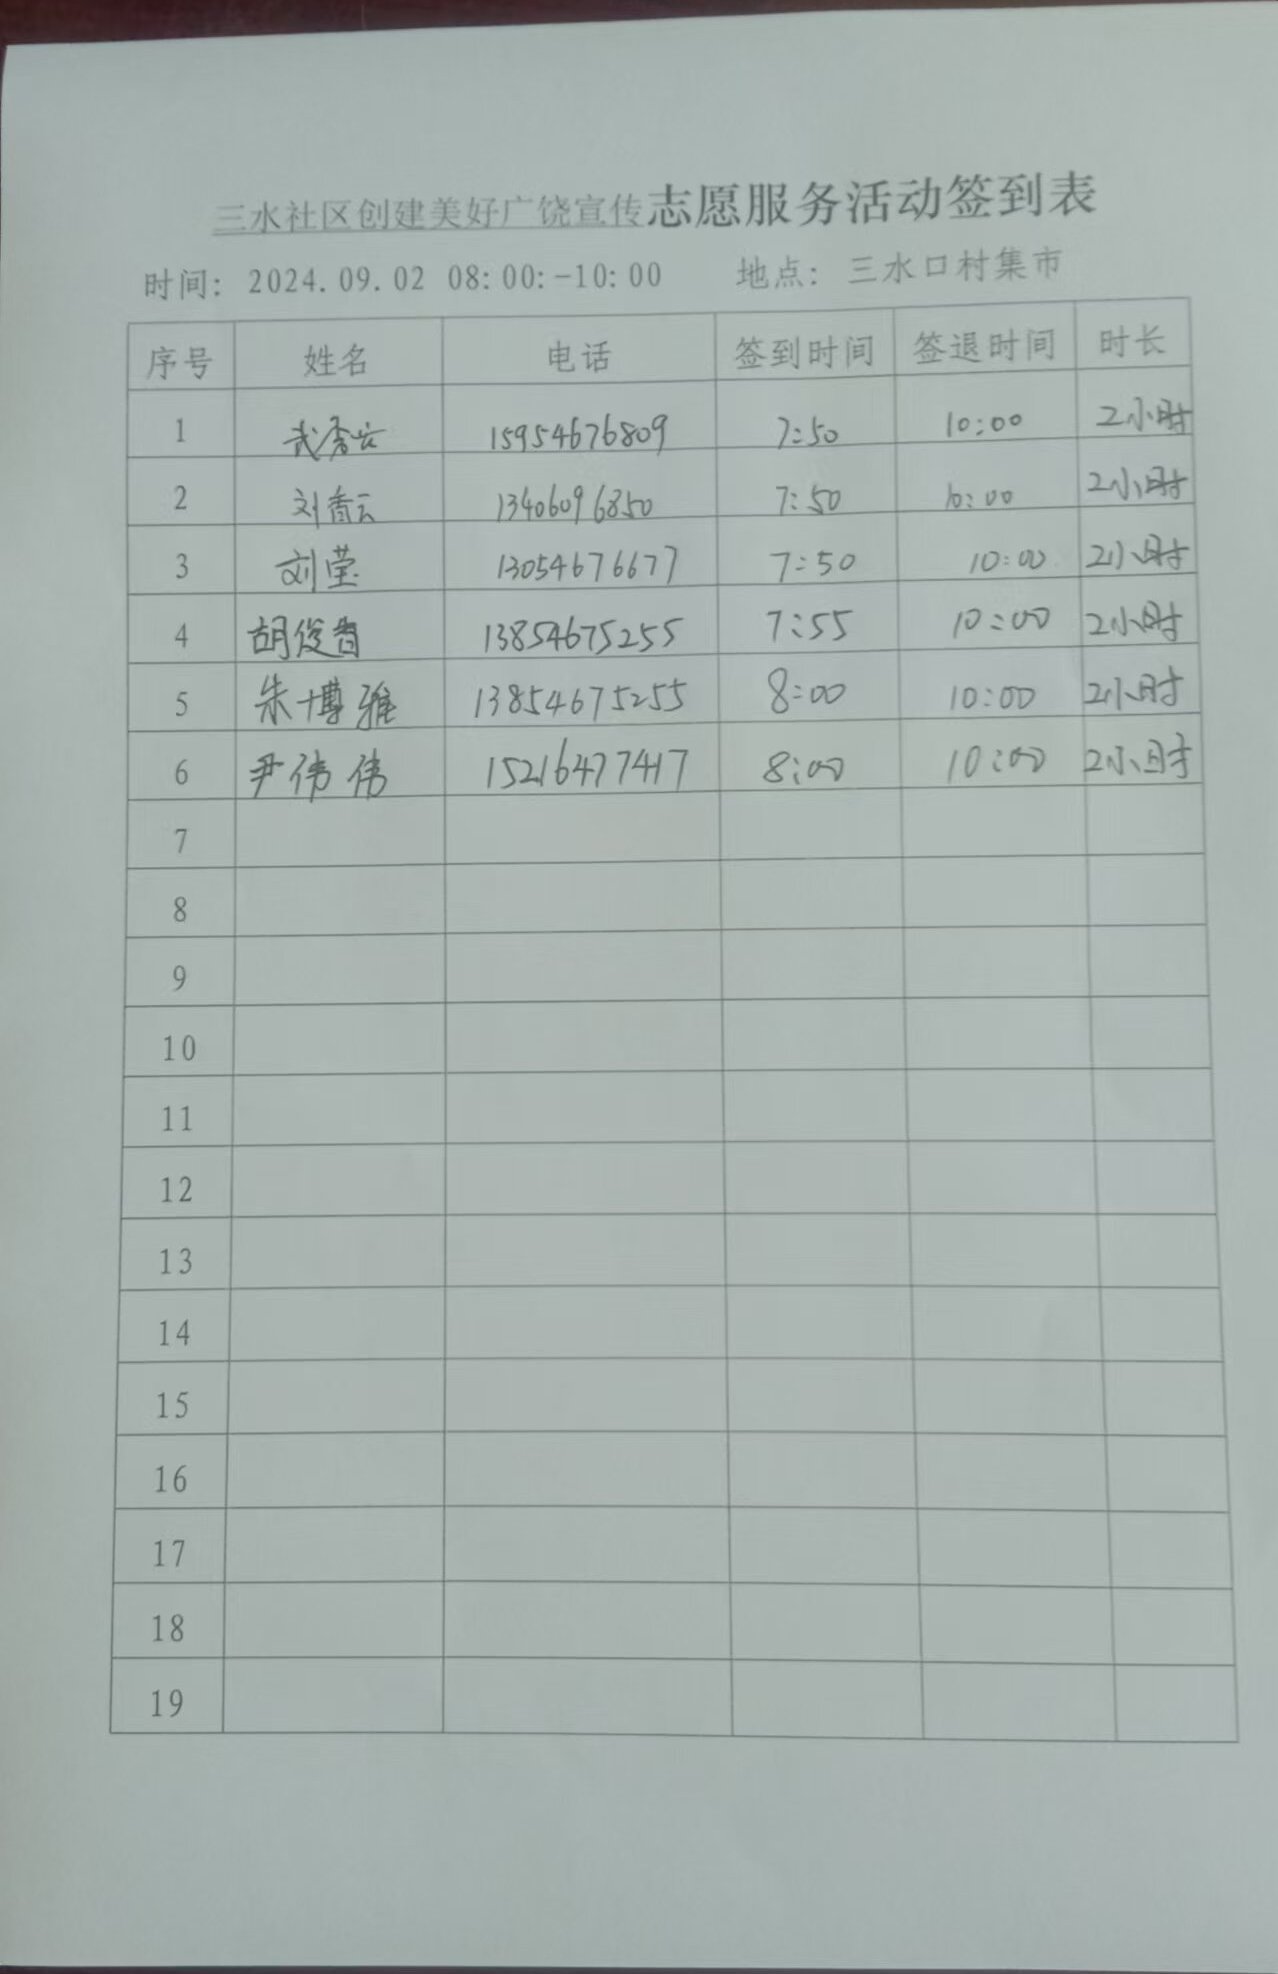 三水社区创建美好广饶宣传志愿服务活动签到表
时间: 2024.09.02 08:00:-10:00 地点: 三水口村集市
序号 姓名 电话 签到时间 签退时间 时长
1 武秀云 15954676809 7:50 10:00 2小时
2 刘香云 13406096850 7:50 10:00 2小时
3 刘莹 13054676677 7:50 10:00 2小时
4 胡俊 13854675255 7:55 10:00 2小时
5 朱博雅 13854675255 8:00 10:00 2小时
6 尹伟伟 15216477417 8:00 10:00 2小时
7
8
9
10
11
12
13
14
15
16
17
18
19